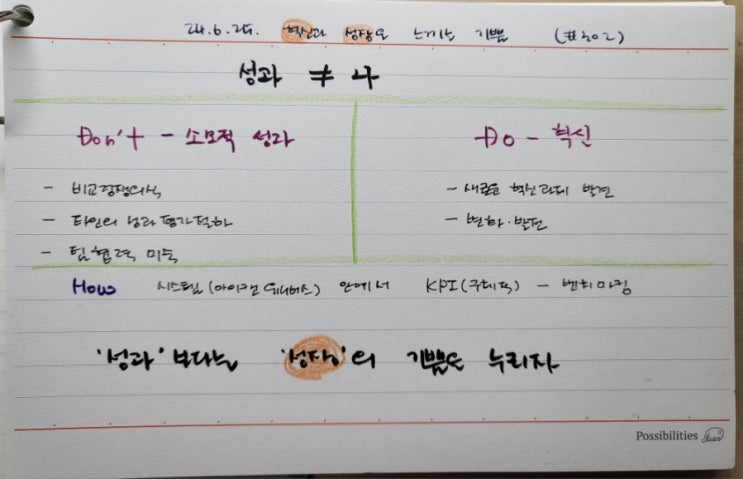 24.6.25. 혁신과 성장을 느끼는 기쁨 (#302)
성과 ≠ 나
Don't - 소모적 성과
- 비교경쟁의식
- 타인의 성과 평가절하
- 팀 협력 미숙
Do - 혁신
- 새로운 혁신과제 발견
- 변화·발전
How 시스템(아이캔유니버스) 안에서 KPI(구체적) - 벤치마킹
'성과'보다는 '성장'의 기쁨을 누리자
Possibilities